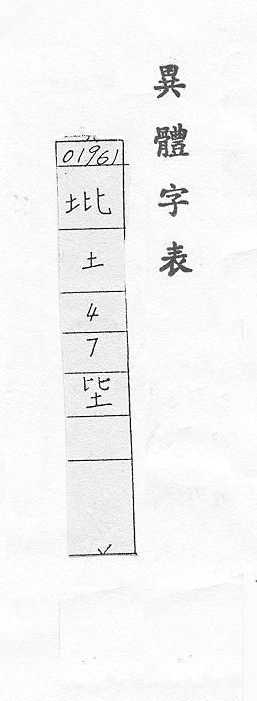 異體字表
01961
𡊡
土
4
7
坒